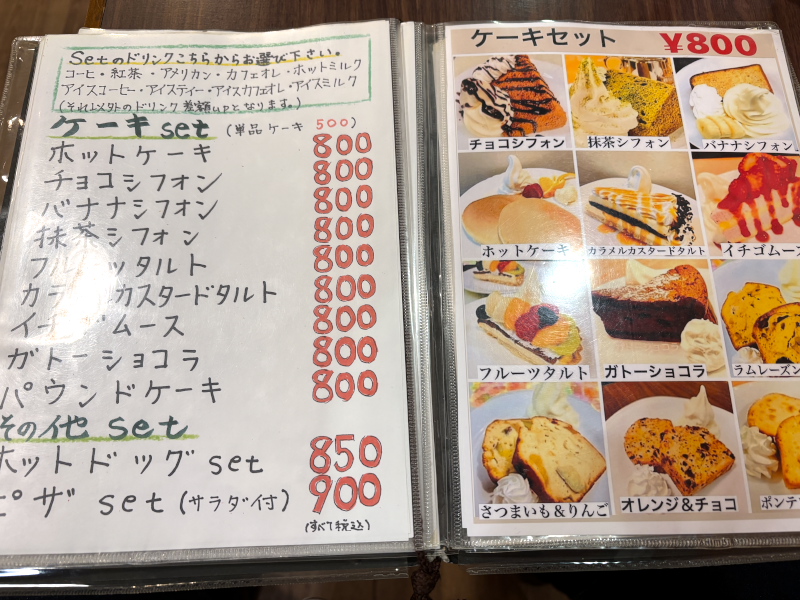 Setのドリンクこちらからお選び下さい。
コーヒ・紅茶・アメリカン・カフェオレ・ホットミルク
アイスコーヒー・アイスティー・アイスカフェオレ・アイスミルク
(それ以外のドリンク差額upとなります。)
ケーキset (単品ケーキ 500)
ホットケーキ 800
チョコシフォン 800
バナナシフォン 800
抹茶シフォン 800
フルーツタルト 800
カラメルカスタードタルト 800
イチゴムース 800
ガトーショコラ 800
パウンドケーキ 800
その他set
ホットドッグset 850
ピザset(サラダ付) 900
(すべて税込)
ケーキセット ¥800
チョコシフォン 抹茶シフォン バナナシフォン
ホットケーキ カラメルカスタードタルト イチゴムース
フルーツタルト ガトーショコラ ラムレーズン
さつまいも&りんご オレンジ&チョコ ポンテ